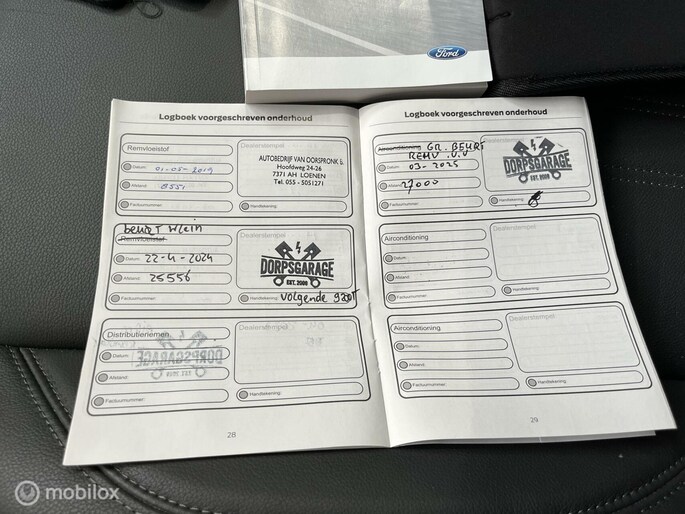 Ford
Logboek voorgeschreven onderhoud
Remvloeistof
Datum: 01-05-2019
Afstand: 8551
Factuurnummer:
Dealerstempel
AUTOBEDRIJF VAN OORSPRONK
Hoofdweg 24-26
7371 AH LOENEN
Tel. 055 - 5051271
Handtekening:
beurt klein
Remvloeistof
Datum: 22-4-2024
Afstand: 25556
Factuurnummer:
Dealerstempel
DORPSGARAGE
EST. 2009
Handtekening: volgende groot
Distributieriemen
Datum:
Afstand:
Factuurnummer:
DORPSGARAGE
Dealerstempel
Handtekening:
28
Logboek voorgeschreven onderhoud
Airconditioning GR. BEURT
REMV.
Datum: 03-2025
Afstand: 27000
Factuurnummer:
Dealerstempel
DORPSGARAGE
EST. 2009
Handtekening:
Airconditioning
Datum:
Afstand:
Factuurnummer:
Dealerstempel
Handtekening:
Airconditioning
Datum:
Afstand:
Factuurnummer:
Dealerstempel
Handtekening:
29
mobilox